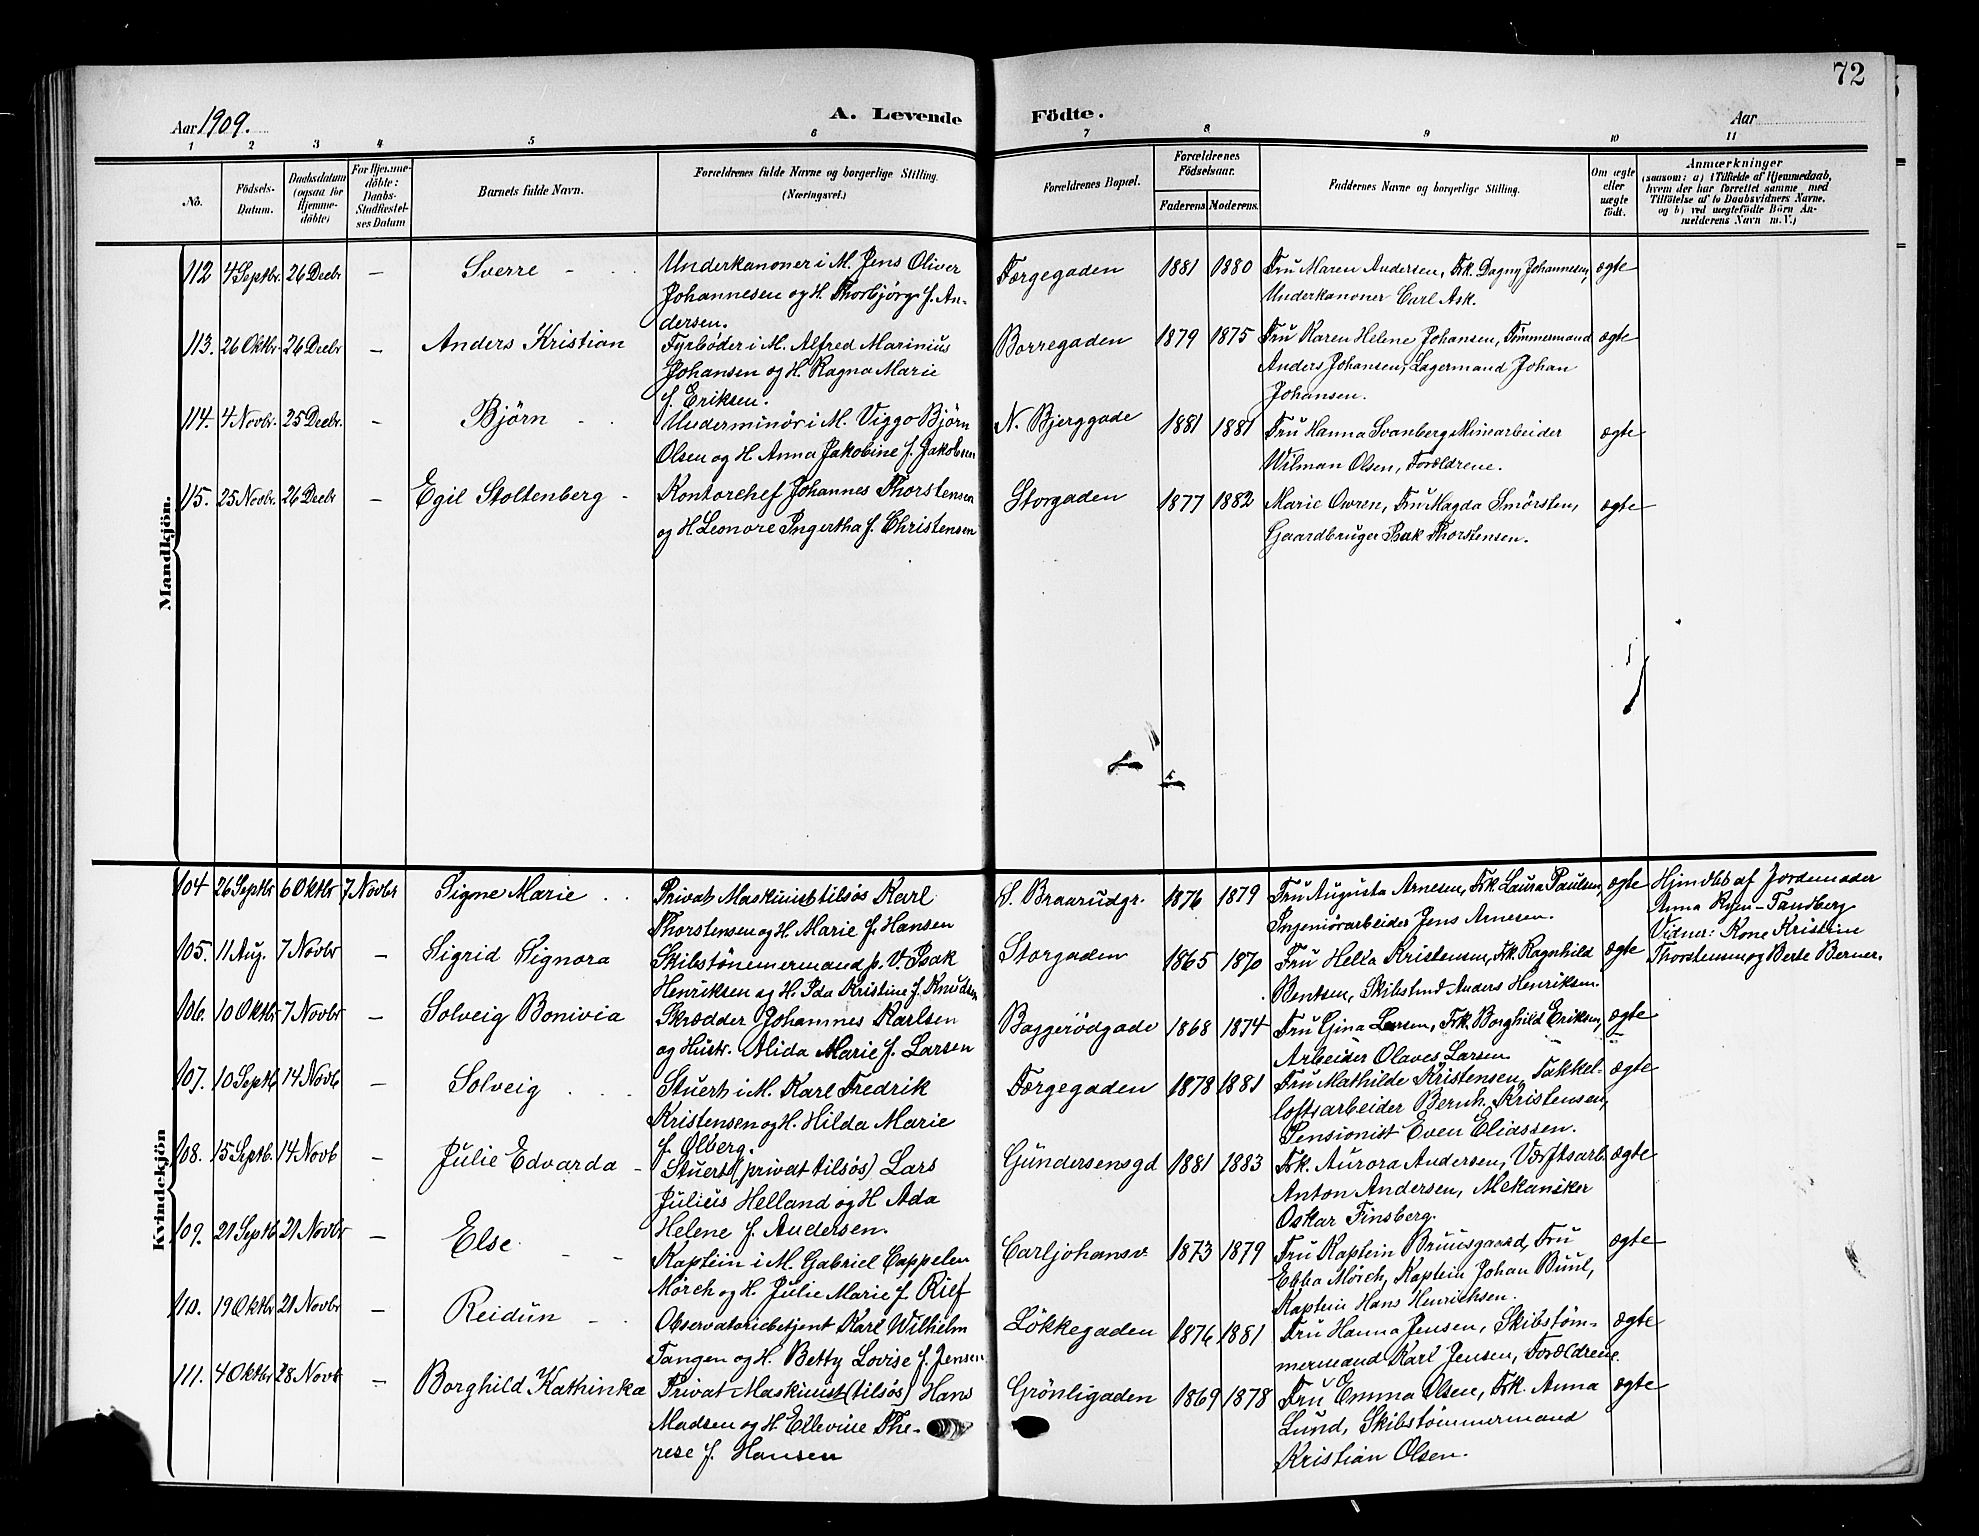 72
Aar 1909.
A. Levende Födte.
Aar
1 2 3 4 5 6 7 8 9 10 11
No.
Födsels-Datum.
Daabsdatum (ogsaa for Hjemme-döbte)
For Hjemme-döbte: Daabs-Stadfæstel-ses Datum
Barnets fulde Navn.
Forældrenes fulde Navne og borgerlige Stilling. (Næringsvei.)
Forældrenes Bopæl.
Forældrenes Födselsaar.
Faderens Moderens.
Faddernes Navne og borgerlige Stilling.
Om ægte eller uægte födt.
Anmærkninger
(saasom: a) i Tilfælde af Hjemmedaab, hvem der har forrettet samme, med Tilföielse af to Daabsvidners Navne, og b) ved uægtefödte Börn An-melderens Navn m. V.)
Mandkjön.
112 4 Septbr. 26 Decbr – Sverre Underkanoner i M. Jens Oliver Færgegaden 1881 1880 Fru Maren Andersen, Frk. Dagny Johannesen, ægte
Johannesen og H. Thorbjörg f. An- Underkanoner Carl Ask.
dersen.
113. 26 Oktbr 26 Decbr – Anders Kristian Fyrbøder i M. Alfred Marinius Borregaden 1879 1875 Fru Karen Helene Johansen, Tømmermand ægte
Johansen og H. Ragna Marie Anders Johansen, Lagermand Johan
f. Eriksen. Johansen.
114. 4 Novbr. 25 Decbr. – Bjørn Underminör i M. Viggo Bjørn N. Bjerggade 1881 1881 Fru Hanna Svanberg, Minearbeider ægte
Olsen og H. Anna Jakobine f. Jakobsen Wilman Olsen, Forældrene.
115. 25 Novbr. 26 Decbr – Egil Stoltenberg – Kontorchef Johannes Thorstensen Storgaden 1877 1882 Marie Owren, Fru Magda Smørsten, ægte
og H. Leonore Ingertha f. Christensen Gaardbruger Isak Thorstensen.
Kvindekjön
104 26 Septbr 6 Oktbr 7 Novbr Signe Marie Privat Maskinist tilsøs Karl S. Braarudgr. 1876 1879 Fru Augusta Arnesen, Frk. Laura Paulsen, ægte Hjmdbt af Jordemoder
Thorstensen og H. Marie f. Hansen Ingeniörarbeider Jens Arnesen. Anna Ryen-Tandberg
105. 11 Aug. 7 Novbr – Sigrid Signora Skibstömmermand p. V. Isak Storgaden 1865 1870 Fru Hella Kristensen, Frk. Ragnhild ægte Vidner: Kone Kristine
Henriksen og H. Ida Kristine f. Knudsen Bentsen, Skibstmd Anders Henriksen. Thorstensen og Berte Berner.
106. 10 Oktbr 7 Novbr – Solveig Bonivia Skrædder Johannes Karlsen Baggerödgade 1868 1874 Fru Gina Larsen, Frk. Borghild Eriksen, ægte
og Hustr. Alida Marie f. Larsen Arbeider Olaves Larsen
107. 10 Septb 14 Novb – Solveig Stuert i M. Karl Fredrik Færgegaden 1878 1881 Fru Mathilde Kristensen, Takkel- ægte
Kristensen og H. Hilda Marie loftsarbeider Bernh. Kristensen,
f. Ølberg. Pensionist Even Eliassen.
108. 15 Septb. 14 Novb – Julie Edvarda – Stuert (privat tilsøs) Lars Gundersensgd 1881 1883 Frk. Aurora Andersen, Værftsarb. ægte
Julius Helland og H. Ada Anton Andersen, Mekaniker
Helene f. Andersen. Oskar Finsberg.
109. 21 Septb 21 Novbr – Else Kaptein i M. Gabriel Cappelen Carljohansv. 1873 1879 Fru Kaptein Bruusgaard, Fru ægte
Mørch og H. Julie Marie f. Rief Ebba Mörch, Kaptein Johan Buul,
Kaptein Hans Henrichsen.
110. 19 Oktbr 21 Novbr – Reidun Observatoriebetjent Karl Wilhelm Lökkegaden 1876 1881 Fru Hanna Jensen, Skibstöm- ægte
Tangen og H. Betty Lovise f. Jensen mermand Karl Jensen, Forældrene.
111. 4 Oktbr 28 Novb – Borghild Kathinka Privat Maskinist (tilsøs) Hans Grönligaden 1869 1878 Fru Emma Olsen, Frk. Anna ægte
Madsen og H. Ellevine The- Lund, Skibstömmermand
rese f. Hansen Kristian Olsen.